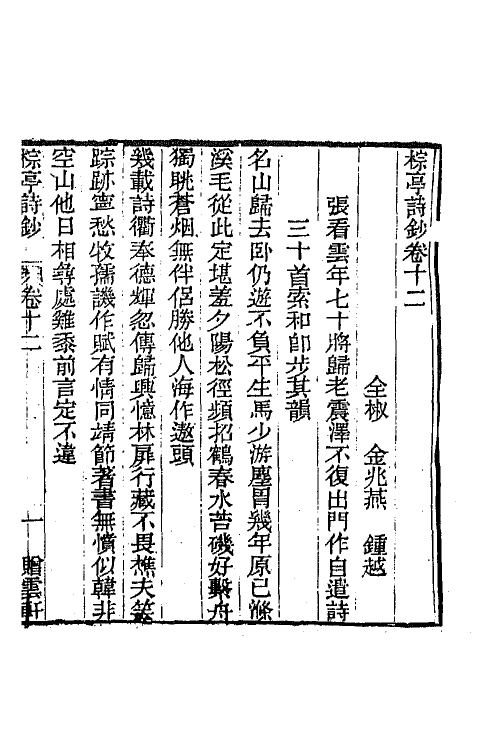 棕亭詩鈔卷十二
全椒　金兆燕　鍾越
張看雲年七十將歸老震澤不復出門作自遣詩
三十首索和卽步其韻
名山歸去卧仍遊不負平生馬少游塵胃幾年原已滌
溪毛從此定堪羞夕陽松徑頻招鶴春水苔磯好繫舟
獨眺蒼烟無伴侶勝他人海作遨頭
幾載詩衢奉德輝忽傳歸興憶林扉行藏不畏樵夫笑
踪跡寧愁牧孺譏作賦有情同靖節著書無憤似韓非
空山他日相尋處雞黍前言定不違
棕亭詩鈔
卷十二
一
贈雲軒